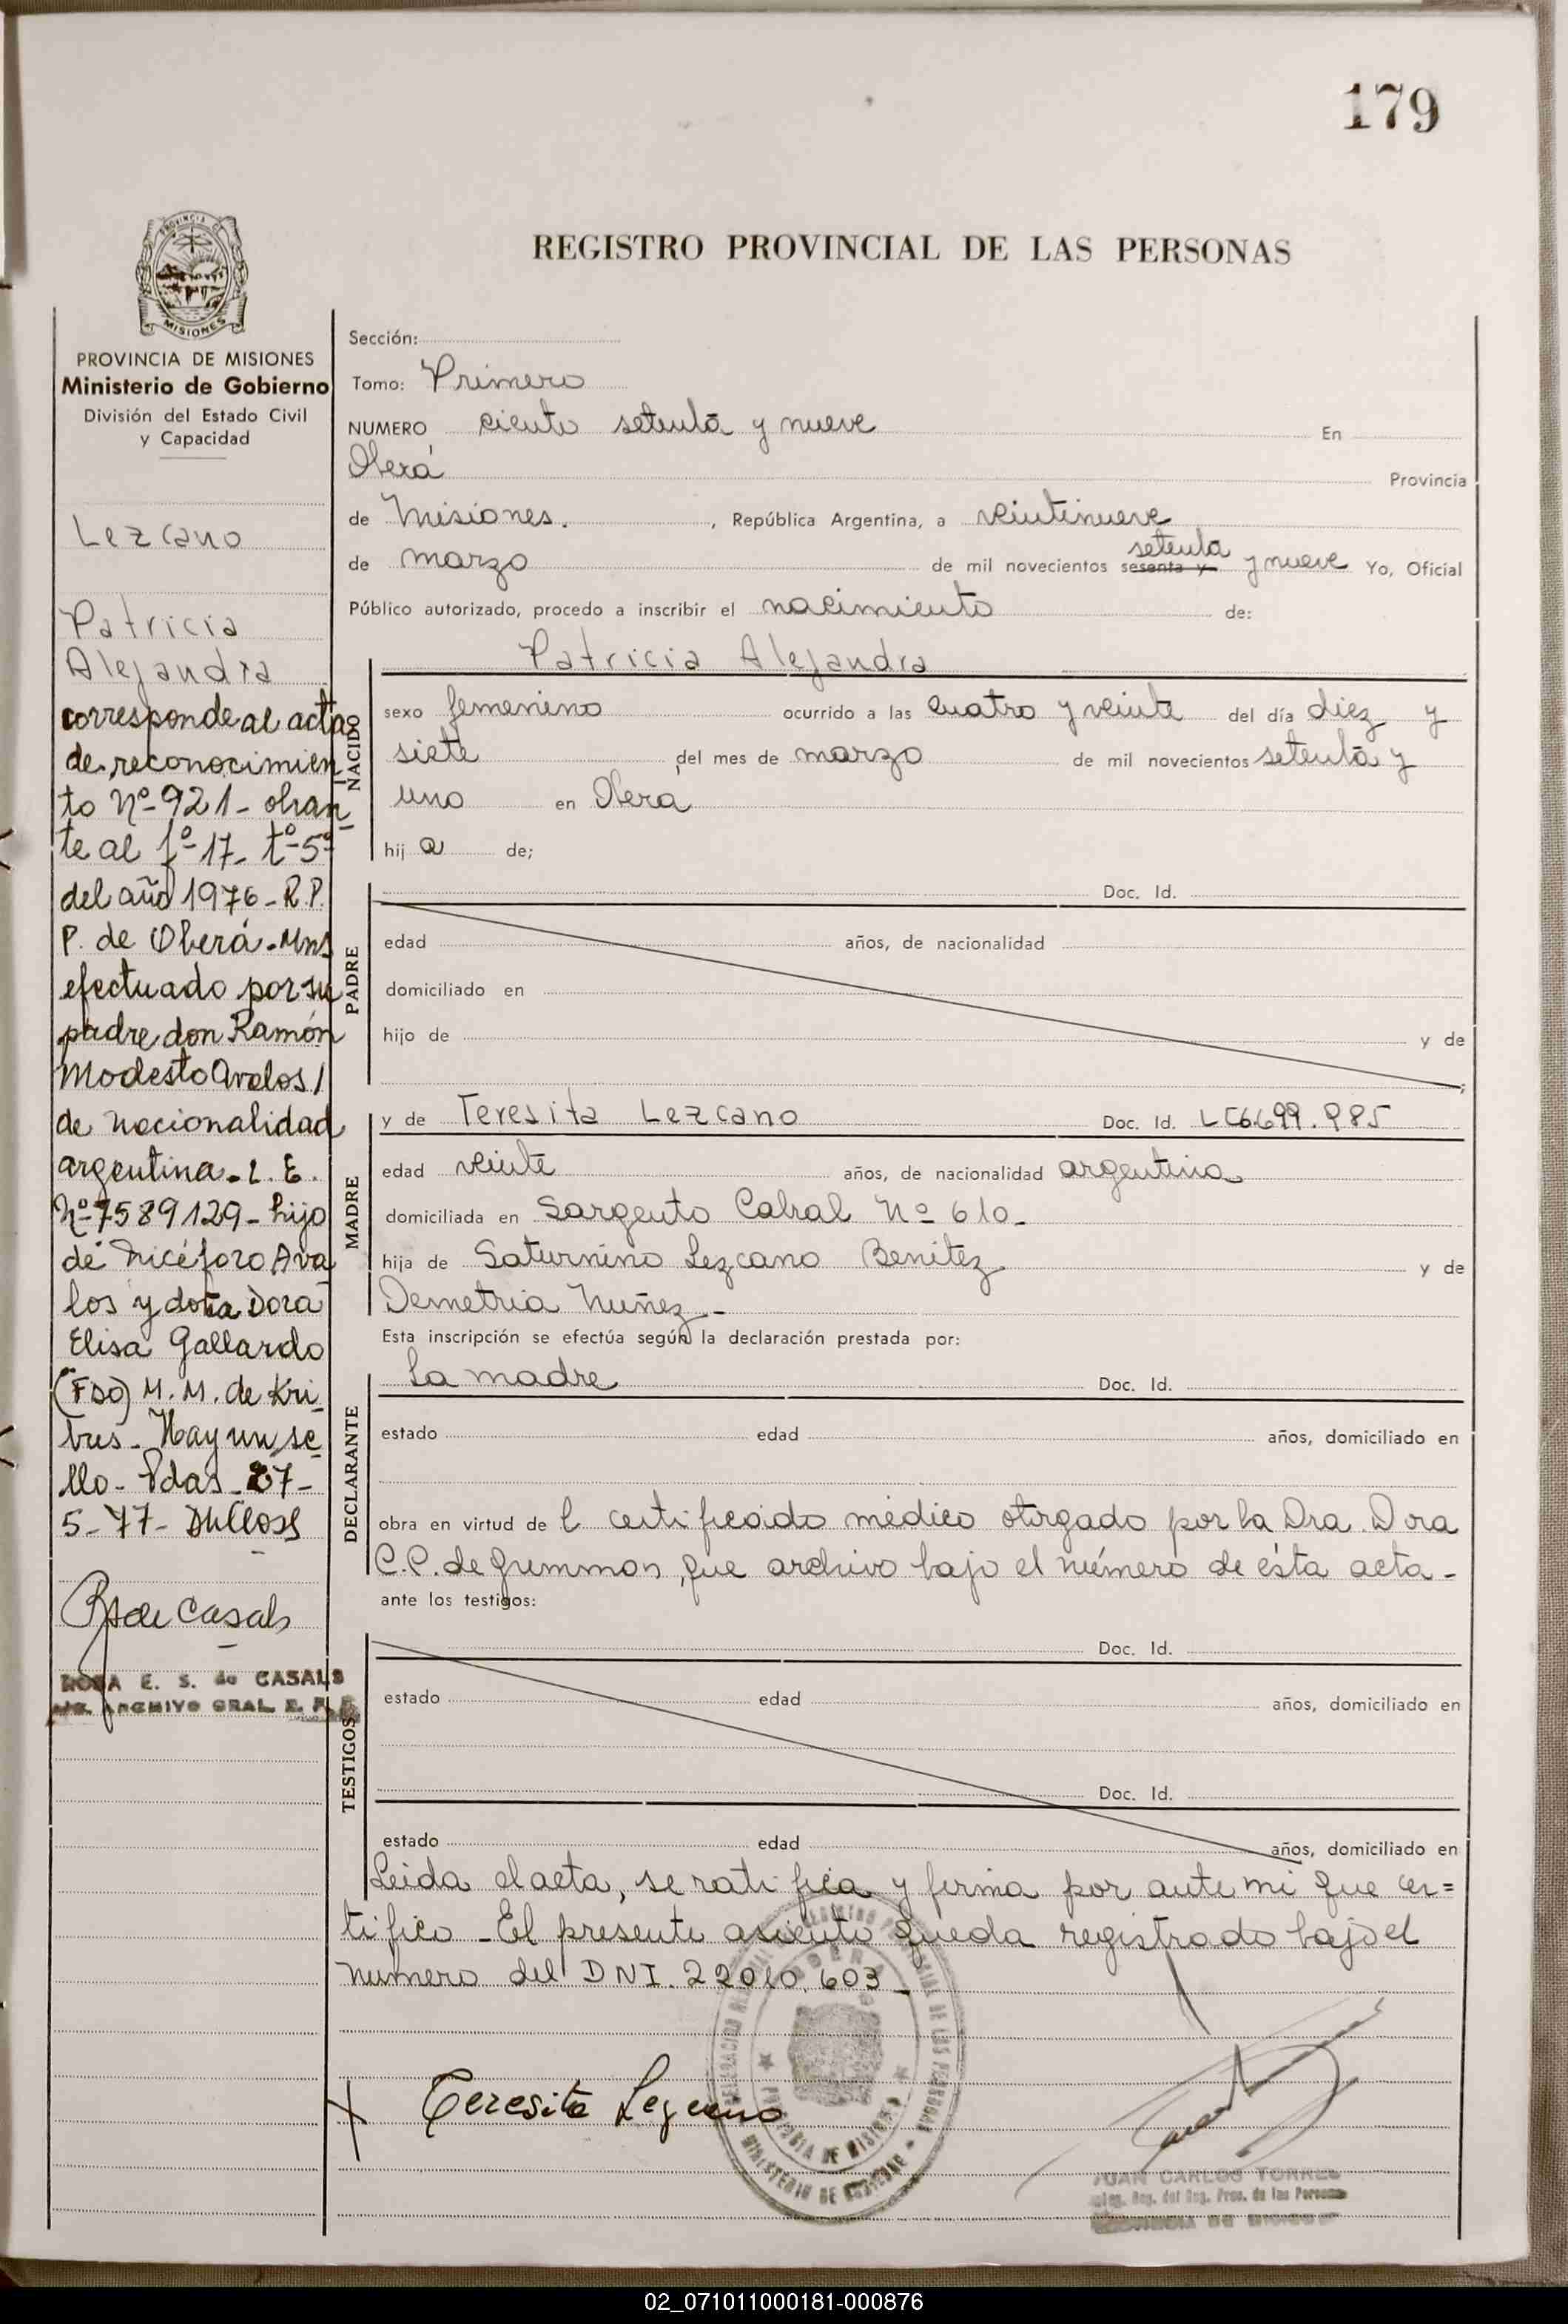 179
REGISTRO PROVINCIAL DE LAS PERSONAS
MISIONES
PROVINCIA DE MISIONES
Ministerio de Gobierno
División del Estado Civil
y Capacidad
Lezcano
Patricia
Alejandra
corresponde al acta
de reconocimien
to Nº-921- obran
te al fº-17- tº-5º
del año 1976- R.P.
P. de Oberá-Mns
efectuado por su
padre don Ramón
Modesto Avalos/
de nacionalidad
argentina-L.E.
Nº-7589129-hijo
de Nicéforo Ava
los y doña Dora
Elisa Gallardo
(Fdo) M.M. de Kri
bus- Hay un se
llo- Pdas- 27-
5-77-
R S de Casals
ROSA E. S. de CASALS
ARCHIVO GRAL. R. P. P.
Sección:
Tomo: Primero
NUMERO ciento setenta y nueve En
Oberá Provincia
de Misiones. , República Argentina, a veintinueve
setenta
de marzo de mil novecientos sesenta y y nueve Yo, Oficial
Público autorizado, procedo a inscribir el nacimiento de:
NACIDO
Patricia Alejandra
sexo femenino ocurrido a las cuatro y veinte del día diez y
siete del mes de marzo de mil novecientos setenta y
uno en Obera
hij a de;
PADRE
Doc. Id.
edad años, de nacionalidad
domiciliado en
hijo de y de
MADRE
y de Teresita Lezcano Doc. Id. LC6.699.985
edad veinte años, de nacionalidad argentina
domiciliada en Sargento Cabral Nº 610-
hija de Saturnino Lezcano Benitez y de
Demetria Nuñez-
Esta inscripción se efectúa según la declaración prestada por:
DECLARANTE
La madre Doc. Id.
estado edad años, domiciliado en
obra en virtud de l certificado médico otorgado por la Dra. Dora
C.P. de que archivo bajo el número de ésta acta-
ante los testigos:
TESTIGOS
Doc. Id.
estado edad años, domiciliado en
Doc. Id.
estado edad años, domiciliado en
Leida el acta, se ratifica y firma por ante mi que cer=
tifico -El presente asiento queda registrado bajo el
numero del DNI. 22010.603-
Teresita Lezcano
PROVINCIA DE MISIONES
MINISTERIO DE GOBIERNO
JUAN CARLOS TORRES
Reg. Prov. de las Personas
PROVINCIA DE MISIONES
02_071011000181-000876